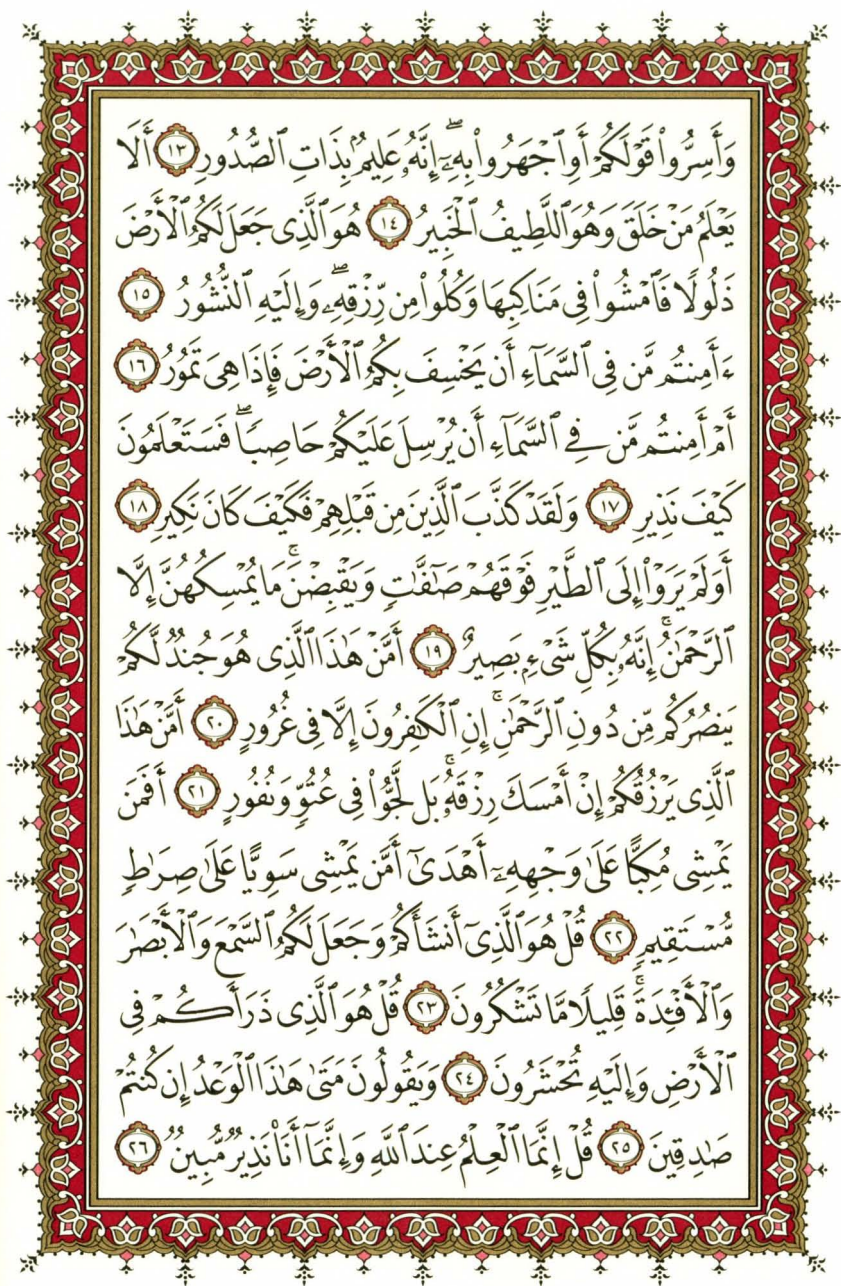 وَأَسِرُّوا۟ قَوْلَكُمْ أَوِ ٱجْهَرُوا۟ بِهِۦٓ ۖ إِنَّهُۥ عَلِيمٌۢ بِذَاتِ ٱلصُّدُورِ ١٣ أَلَا
يَعْلَمُ مَنْ خَلَقَ وَهُوَ ٱللَّطِيفُ ٱلْخَبِيرُ ١٤ هُوَ ٱلَّذِى جَعَلَ لَكُمُ ٱلْأَرْضَ
ذَلُولًا فَٱمْشُوا۟ فِى مَنَاكِبِهَا وَكُلُوا۟ مِن رِّزْقِهِۦ ۖ وَإِلَيْهِ ٱلنُّشُورُ ١٥
ءَأَمِنتُم مَّن فِى ٱلسَّمَآءِ أَن يَخْسِفَ بِكُمُ ٱلْأَرْضَ فَإِذَا هِىَ تَمُورُ ١٦
أَمْ أَمِنتُم مَّن فِى ٱلسَّمَآءِ أَن يُرْسِلَ عَلَيْكُمْ حَاصِبًا ۖ فَسَتَعْلَمُونَ
كَيْفَ نَذِيرِ ١٧ وَلَقَدْ كَذَّبَ ٱلَّذِينَ مِن قَبْلِهِمْ فَكَيْفَ كَانَ نَكِيرِ ١٨
أَوَلَمْ يَرَوْا۟ إِلَى ٱلطَّيْرِ فَوْقَهُمْ صَٰٓفَّٰتٍ وَيَقْبِضْنَ ۚ مَا يُمْسِكُهُنَّ إِلَّا
ٱلرَّحْمَٰنُ ۚ إِنَّهُۥ بِكُلِّ شَىْءٍۭ بَصِيرٌ ١٩ أَمَّنْ هَٰذَا ٱلَّذِى هُوَ جُندٌ لَّكُمْ
يَنصُرُكُم مِّن دُونِ ٱلرَّحْمَٰنِ ۚ إِنِ ٱلْكَٰفِرُونَ إِلَّا فِى غُرُورٍ ٢٠ أَمَّنْ هَٰذَا
ٱلَّذِى يَرْزُقُكُمْ إِنْ أَمْسَكَ رِزْقَهُۥ ۚ بَل لَّجُّوا۟ فِى عُتُوٍّ وَنُفُورٍ ٢١ أَفَمَن
يَمْشِى مُكِبًّا عَلَىٰ وَجْهِهِۦٓ أَهْدَىٰٓ أَمَّن يَمْشِى سَوِيًّا عَلَىٰ صِرَٰطٍ
مُّسْتَقِيمٍ ٢٢ قُلْ هُوَ ٱلَّذِىٓ أَنشَأَكُمْ وَجَعَلَ لَكُمُ ٱلسَّمْعَ وَٱلْأَبْصَٰرَ
وَٱلْأَفْـِٔدَةَ ۖ قَلِيلًا مَّا تَشْكُرُونَ ٢٣ قُلْ هُوَ ٱلَّذِى ذَرَأَكُمْ فِى
ٱلْأَرْضِ وَإِلَيْهِ تُحْشَرُونَ ٢٤ وَيَقُولُونَ مَتَىٰ هَٰذَا ٱلْوَعْدُ إِن كُنتُمْ
صَٰدِقِينَ ٢٥ قُلْ إِنَّمَا ٱلْعِلْمُ عِندَ ٱللَّهِ وَإِنَّمَآ أَنَا۠ نَذِيرٌ مُّبِينٌ ٢٦